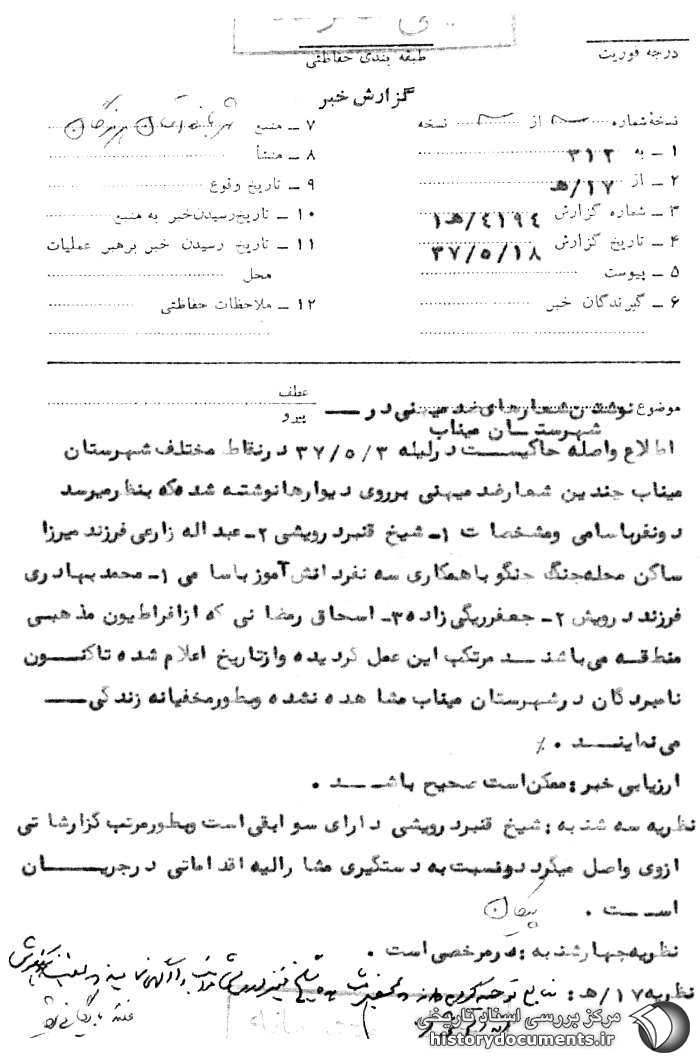 طبقه بندی حفاظتی
درجه فوریت
گزارش خبر
نسخهٔ شماره از نسخه
۱ ـ به ۳۱۲
۲ ـ از ۱۷/هـ
۳ ـ شماره گزارش ۴۱۹۴/هـ۱
۴ ـ تاریخ گزارش ۳۷/۵/۱۸
۵ ـ پیوست
۶ ـ گیرندگان خبر
۷ ـ منبع
۸ ـ منشأ
۹ ـ تاریخ وقوع
۱۰ ـ تاریخ رسیدن خبر به منبع
۱۱ ـ تاریخ رسیدن خبر برهبر عملیات
محل
۱۲ ـ ملاحظات حفاظتی
موضوع نوشتن شعارهای ضد میهنی در ـــ
شهرستان میناب
عطف
پیرو
اطلاع واصله حاکیست در لیله ۳۷/۵/۳ در نقاط مختلف شهرستان
میناب چندین شعار ضد میهنی بر روی دیوارها نوشته شده که بنظر میرسد
دونفر باسامی ومشخصات ۱ـ شیخ قنبر درویشی ۲ـ عبداله زارعی فرزند میرزا
ساکن محله جنگ جنگو باهمکاری سه نفر دانش آموز باسامی ۱ـ محمد بهادری
فرزند درویش ۲ـ جعفر ریگی زاده ۳ـ اسحاق رمضانی که از افراطیون مذهبی
منطقه می باشند مرتکب این عمل گردیده و از تاریخ اعلام شده تاکنون
نامبردگان در شهرستان میناب مشاهده نشده وبطور مخفیانه زندگی
می نمایند . ٪
ارزیابی خبر : ممکن است صحیح باشد .
نظریه سه شنبه : شیخ قنبر درویشی دارای سوابقی است وبطور مرتب گزارشاتی
ازوی واصل میگردد ونسبت به دستگیری مشارالیه اقداماتی درجریان
است . پیکان
نظریه چهارشنبه : در مرخصی است .
نظریه ۱۷/هـ :
مرکز بررسی اسناد تاریخی
historydocuments.ir